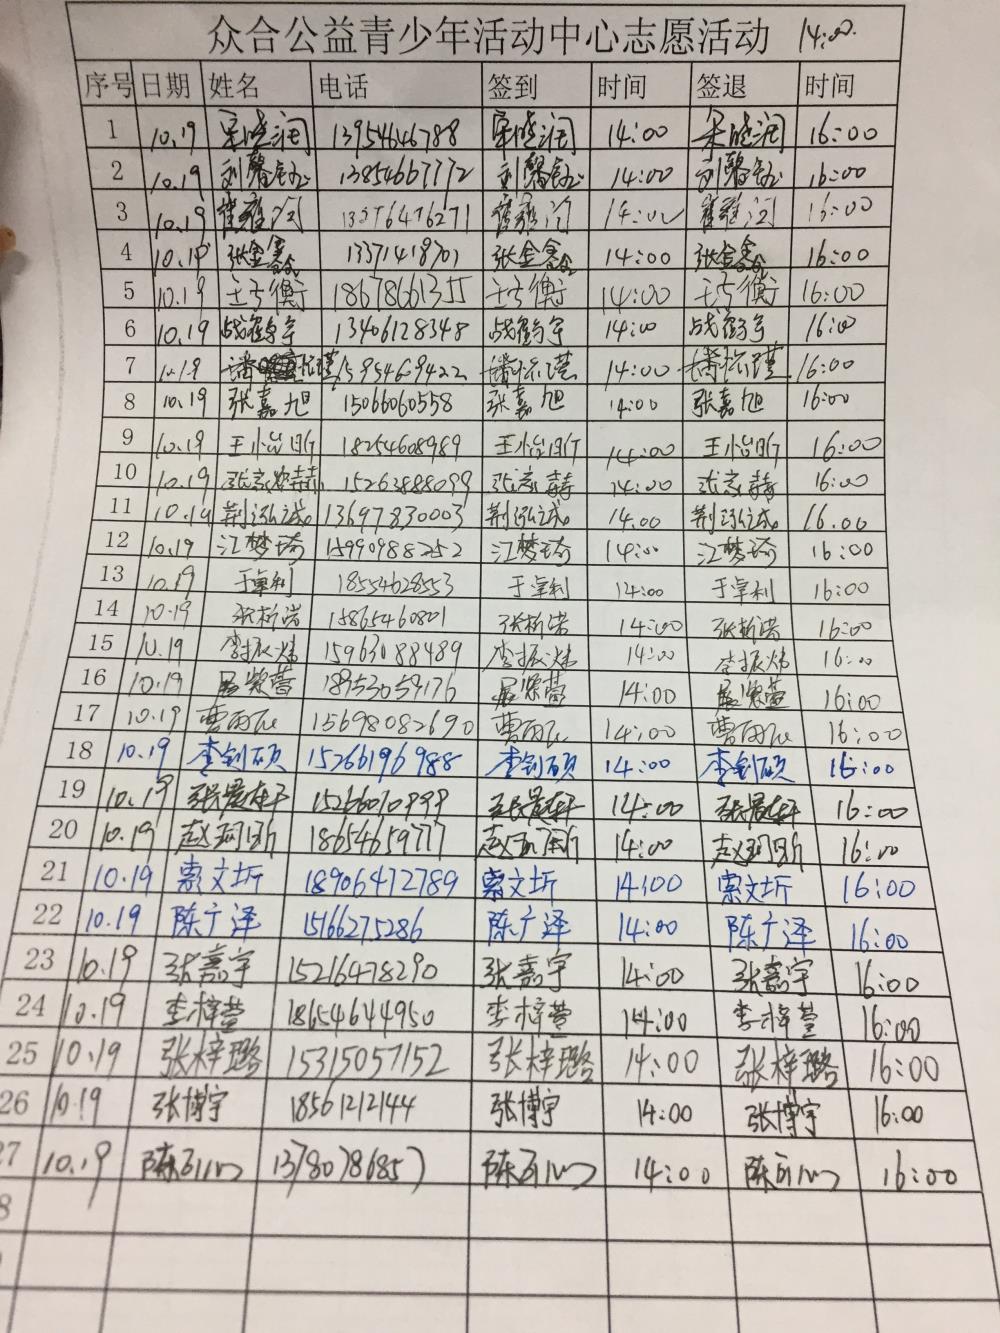 众合公益青少年活动中心志愿活动 14:00
序号 日期 姓名 电话 签到 时间 签退 时间
1 10.19 宋晓润 13954646788 宋晓润 14:00 宋晓润 16:00
2 10.19 刘馨钰 13854667772 刘馨钰 14:00 刘馨钰 16:00
3 10.19 14:00 16:00
4 10.19 张金鑫 13371418701 张金鑫 14:00 张金鑫 16:00
5 10.19 18678661355 14:00 16:00
6 10.19 战鹤宇 13406128348 战鹤宇 14:00 战鹤宇 16:00
7 10.19 15954629422 14:00 16:00
8 10.19 张嘉旭 15066060558 张嘉旭 14:00 张嘉旭 16:00
9 10.19 王怡昕 18254608989 王怡昕 14:00 王怡昕 16:00
10 10.19 15263888099 14:00 16:00
11 10.19 荆泓诚 13697830003 荆泓诚 14.00 荆泓诚 16.00
12 10.19 江梦琦 15990988252 江梦琦 14:00 江梦琦 16:00
13 10.19 于卓利 18554628553 于卓利 14:00 于卓利 16:00
14 10.19 张析诺 15865460801 张析诺 14:00 张析诺 16:00
15 10.19 李振炜 15963088489 李振炜 14:00 李振炜 16:00
16 10.19 18953059176 14:00 16:00
17 10.19 15698082690 14:00 16:00
18 10.19 李钊硕 15266196988 李钊硕 14:00 李钊硕 16:00
19 10.19 张晨轩 15266070999 张晨轩 14:00 张晨轩 16:00
20 10.19 赵珂昕 18654659777 14:00 赵珂昕 16:00
21 10.19 索文圻 18906472789 索文圻 14:00 索文圻 16:00
22 10.19 陈广泽 15166275286 陈广泽 14:00 陈广泽 16:00
23 10.19 张嘉宇 15216478290 张嘉宇 14:00 张嘉宇 16:00
24 10.19 李梓萱 18654644950 李梓萱 14:00 李梓萱 16:00
25 10.19 张梓璐 15315057152 张梓璐 14:00 张梓璐 16:00
26 10.19 张博宇 18561212144 张博宇 14:00 张博宇 16:00
27 10.19 13780786857 14:00 16:00